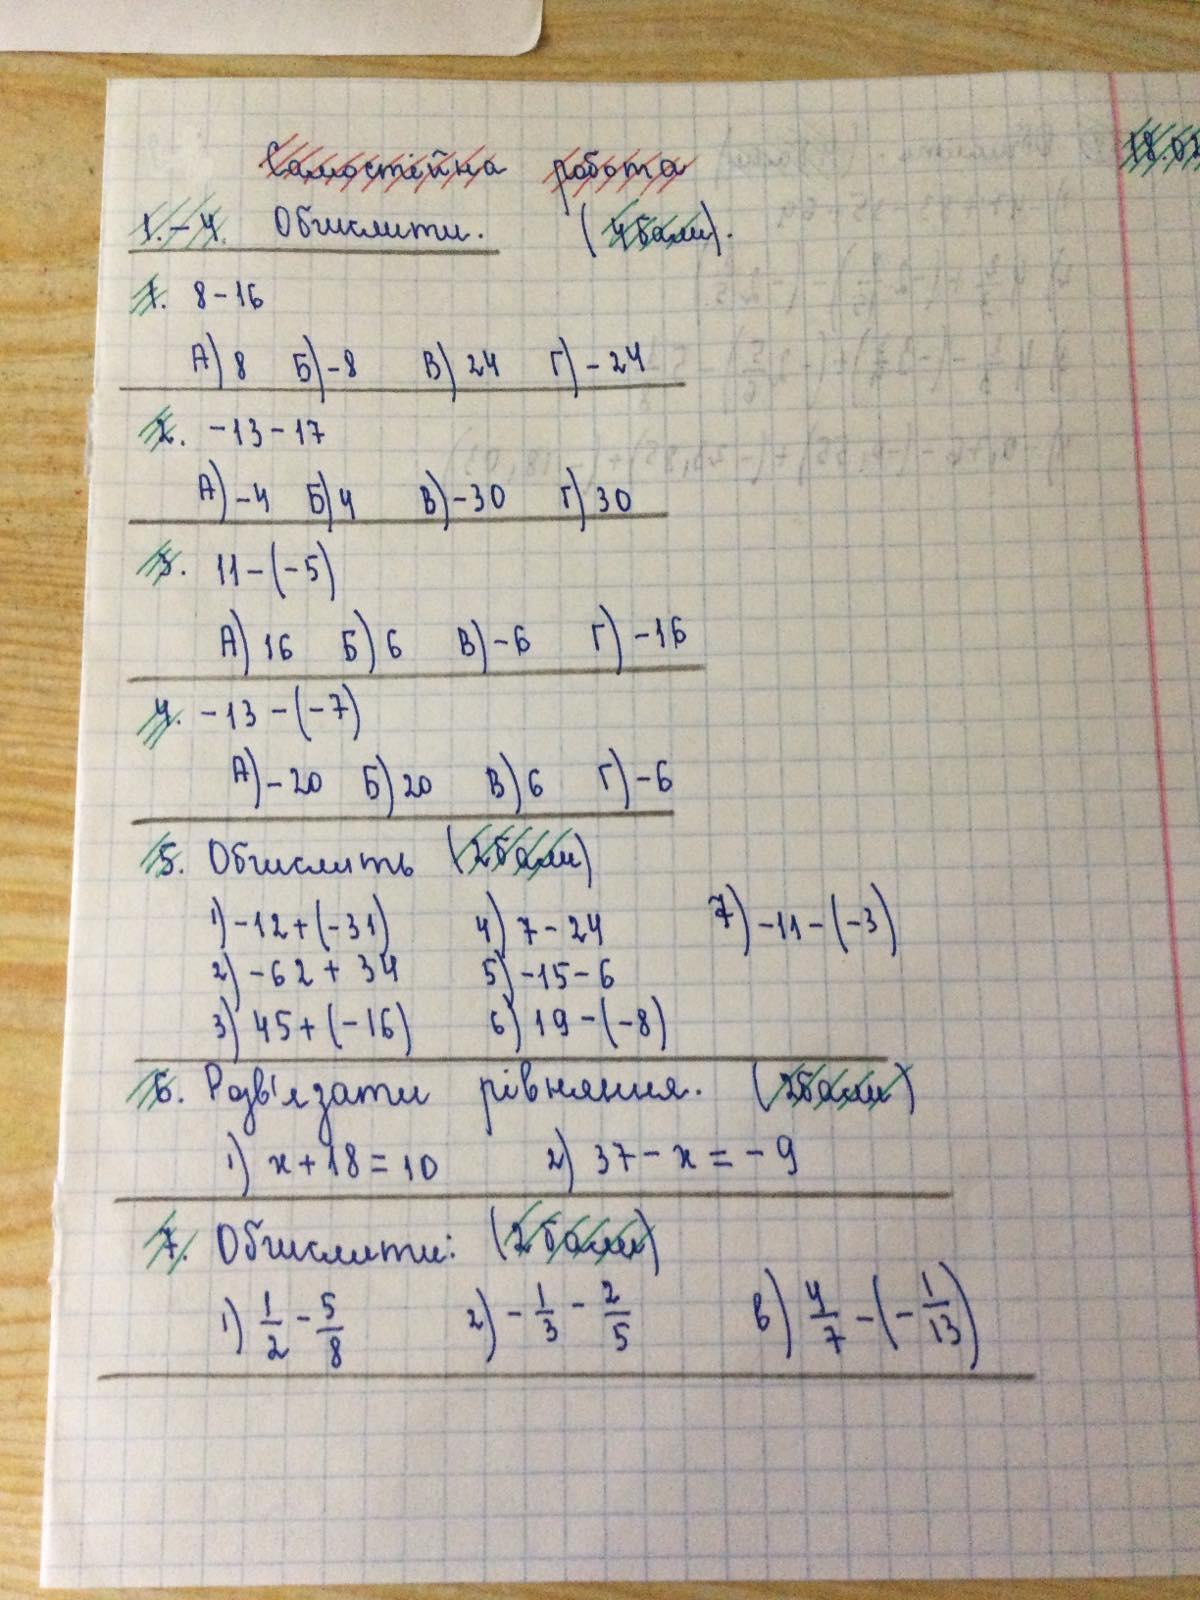 Самостійна робота
18.02
1.-4. Обчислити. (4 бали).
1. 8-16
А) 8 Б) -8 В) 24 Г) -24
2. -13-17
А) -4 Б) 4 В) -30 Г) 30
3. 11-(-5)
А) 16 Б) 6 В) -6 Г) -16
4. -13-(-7)
А) -20 Б) 20 В) 6 Г) -6
5. Обчислить (2 бали)
1) -12+(-31) 4) 7-24 7) -11-(-3)
2) -62+34 5) -15-6
3) 45+(-16) 6) 19-(-8)
6. Розв'язати рівняння. (2 бали)
1) x+18=10 2) 37-x=-9
7. Обчислити: (2 бали)
1) 1/2 - 5/8 2) -1/3 - 2/5 в) 4/7 - (-1/13)